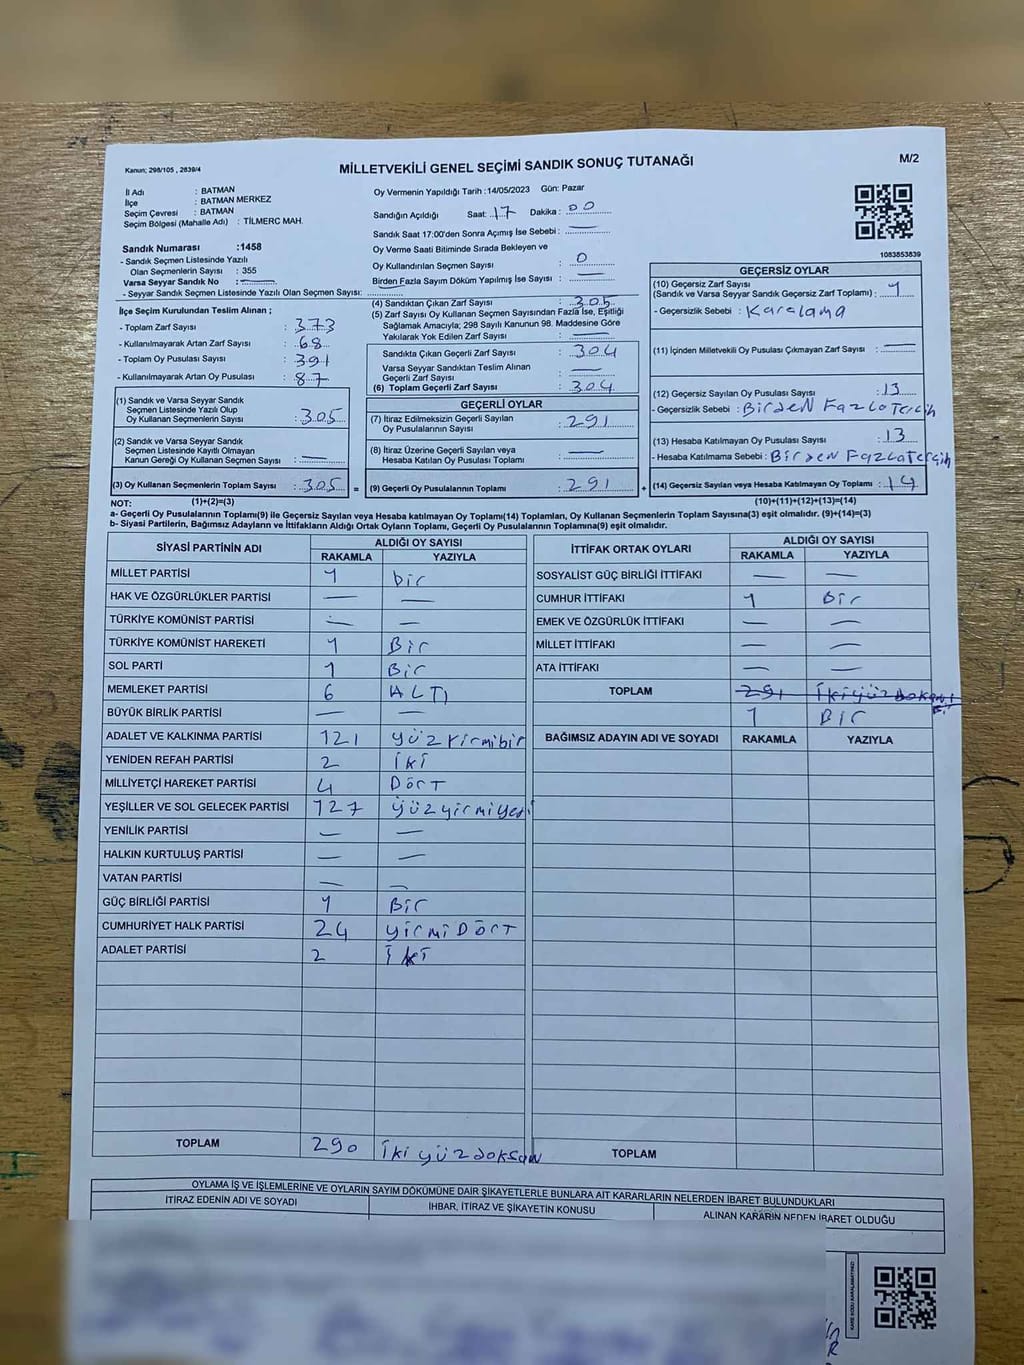 Kanun; 298/105 , 2839/4
MİLLETVEKİLİ GENEL SEÇİMİ SANDIK SONUÇ TUTANAĞI
M/2
İl Adı : BATMAN
İlçe : BATMAN MERKEZ
Seçim Çevresi : BATMAN
Seçim Bölgesi (Mahalle Adı) : TİLMERC MAH.
Oy Vermenin Yapıldığı Tarih :14/05/2023 Gün: Pazar
Sandığın Açıldığı Saat: 17 Dakika : 00
Sandık Saat 17:00'den Sonra Açımış İse Sebebi : —
Oy Verme Saati Bitiminde Sırada Bekleyen ve
Oy Kullandırılan Seçmen Sayısı : 0
Birden Fazla Sayım Döküm Yapılmış İse Sayısı : —
1083853839
Sandık Numarası :1458
- Sandık Seçmen Listesinde Yazılı
Olan Seçmenlerin Sayısı : 355
Varsa Seyyar Sandık No : —
- Seyyar Sandık Seçmen Listesinde Yazılı Olan Seçmen Sayısı:
İlçe Seçim Kurulundan Teslim Alınan ;
- Toplam Zarf Sayısı : 373
- Kullanılmayarak Artan Zarf Sayısı : 68
- Toplam Oy Pusulası Sayısı : 391
- Kullanılmayarak Artan Oy Pusulası : 87
(1) Sandık ve Varsa Seyyar Sandık
Seçmen Listesinde Yazılı Olup
Oy Kullanan Seçmenlerin Sayısı : 305
(2) Sandık ve Varsa Seyyar Sandık
Seçmen Listesinde Kayıtlı Olmayan
Kanun Gereği Oy Kullanan Seçmen Sayısı : —
(3) Oy Kullanan Seçmenlerin Toplam Sayısı : 305 =
(1)+(2)=(3)
(4) Sandıktan Çıkan Zarf Sayısı : 305
(5) Zarf Sayısı Oy Kullanan Seçmen Sayısından Fazla İse, Eşitliği
Sağlamak Amacıyla; 298 Sayılı Kanunun 98. Maddesine Göre
Yakılarak Yok Edilen Zarf Sayısı : —
Sandıkta Çıkan Geçerli Zarf Sayısı : 304
Varsa Seyyar Sandıktan Teslim Alınan
Geçerli Zarf Sayısı : —
(6) Toplam Geçerli Zarf Sayısı : 304
GEÇERLİ OYLAR
(7) İtiraz Edilmeksizin Geçerli Sayılan
Oy Pusulalarının Sayısı : 291
(8) İtiraz Üzerine Geçerli Sayılan veya
Hesaba Katılan Oy Pusulası Toplamı : —
(9) Geçerli Oy Pusulalarının Toplamı : 291 +
GEÇERSİZ OYLAR
(10) Geçersiz Zarf Sayısı
(Sandık ve Varsa Seyyar Sandık Geçersiz Zarf Toplamı) : 1
- Geçersizlik Sebebi : Karalama
(11) İçinden Milletvekili Oy Pusulası Çıkmayan Zarf Sayısı : —
(12) Geçersiz Sayılan Oy Pusulası Sayısı : 13
- Geçersizlik Sebebi : Birden Fazla Tercih
(13) Hesaba Katılmayan Oy Pusulası Sayısı : 13
- Hesaba Katılmama Sebebi : Birden Fazla Tercih
(14) Geçersiz Sayılan veya Hesaba Katılmayan Oy Toplamı : 14
(10)+(11)+(12)+(13)=(14)
NOT:
a- Geçerli Oy Pusulalarının Toplamı(9) ile Geçersiz Sayılan veya Hesaba Katılmayan Oy Toplamı(14) Toplamları, Oy Kullanan Seçmenlerin Toplam Sayısına(3) eşit olmalıdır. (9)+(14)=(3)
b- Siyasi Partilerin, Bağımsız Adayların ve İttifakların Aldığı Ortak Oyların Toplamı, Geçerli Oy Pusulalarının Toplamına(9) eşit olmalıdır.
SİYASİ PARTİNİN ADI
ALDIĞI OY SAYISI
RAKAMLA YAZIYLA
MİLLET PARTİSİ 1 bir
HAK VE ÖZGÜRLÜKLER PARTİSİ — —
TÜRKİYE KOMÜNİST PARTİSİ — —
TÜRKİYE KOMÜNİST HAREKETİ 1 Bir
SOL PARTİ 1 Bir
MEMLEKET PARTİSİ 6 ALTI
BÜYÜK BİRLİK PARTİSİ — —
ADALET VE KALKINMA PARTİSİ 121 yüzyirmibir
YENİDEN REFAH PARTİSİ 2 iki
MİLLİYETÇİ HAREKET PARTİSİ 4 Dört
YEŞİLLER VE SOL GELECEK PARTİSİ 127 yüzyirmiyedi
YENİLİK PARTİSİ — —
HALKIN KURTULUŞ PARTİSİ — —
VATAN PARTİSİ — —
GÜÇ BİRLİĞİ PARTİSİ 1 Bir
CUMHURİYET HALK PARTİSİ 24 yirmi Dört
ADALET PARTİSİ 2 iki
TOPLAM 290 iki yüz doksan
İTTİFAK ORTAK OYLARI
ALDIĞI OY SAYISI
RAKAMLA YAZIYLA
SOSYALİST GÜÇ BİRLİĞİ İTTİFAKI — —
CUMHUR İTTİFAKI 1 Bir
EMEK VE ÖZGÜRLÜK İTTİFAKI — —
MİLLET İTTİFAKI — —
ATA İTTİFAKI — —
TOPLAM 291
1 Bir
BAĞIMSIZ ADAYIN ADI VE SOYADI RAKAMLA YAZIYLA
TOPLAM
OYLAMA İŞ VE İŞLEMLERİNE VE OYLARIN SAYIM DÖKÜMÜNE DAİR ŞİKAYETLERLE BUNLARA AİT KARARLARIN NELERDEN İBARET BULUNDUKLARI
İTİRAZ EDENİN ADI VE SOYADI
İHBAR, İTİRAZ VE ŞİKAYETİN KONUSU
ALINAN KARARIN NEDEN İBARET OLDUĞU
KARE KODU KARALAMAYINIZ!